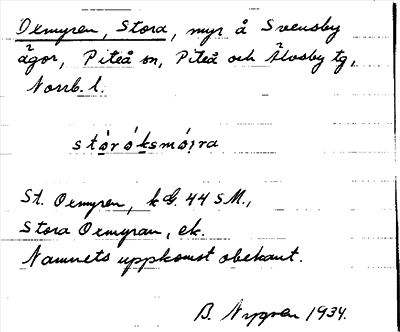 Oxmyren, Stora, myr å Svensby
ägor, Piteå sn, Piteå och Älvsby tg,
Norrb. l.
stórók̲smó̲i̲ra
St. Oxmyren, k G. 44 SM.,
Stora Oxmyran, ek.
Namnets uppkomst obekant.
B. Nygren 1934.